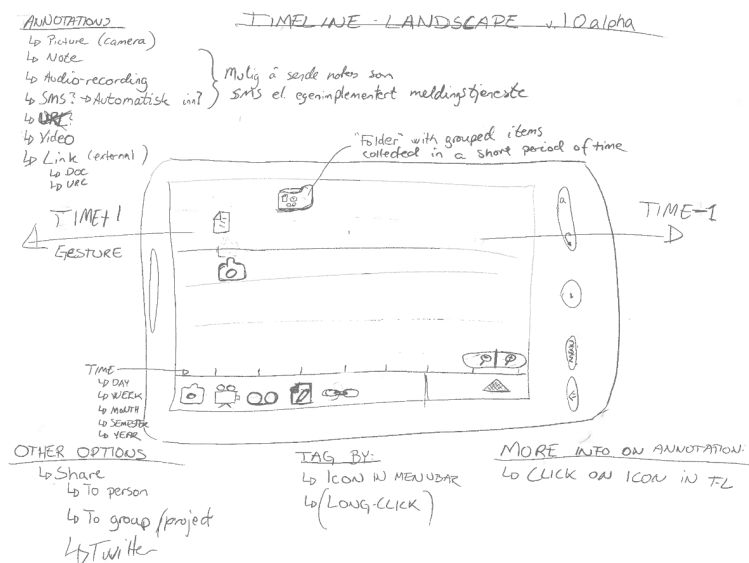 TIMELINE - LANDSCAPE v.1.0alpha
ANNOTATIONS
↳ Picture (camera)
↳ Note
↳ Audio-recording
↳ SMS? → Automatisk inn?
↳ URL?
↳ Video
↳ Link (external)
↳ DOC
↳ URL
Mulig å sende notes som
SMS el egenimplementert meldingstjeneste
"Folder" with grouped items
collected in a short period of time
TIME+1
GESTURE
TIME-1
MENU
TIME
↳ DAY
↳ WEEK
↳ MONTH
↳ SEMESTER
↳ YEAR
OTHER OPTIONS
↳ Share
↳ To person
↳ To group/project
↳ Twitter
TAG BY:
↳ ICON IN MENUBAR
↳ (LONG-CLICK)
MORE INFO ON ANNOTATION:
↳ CLICK ON ICON IN T-L